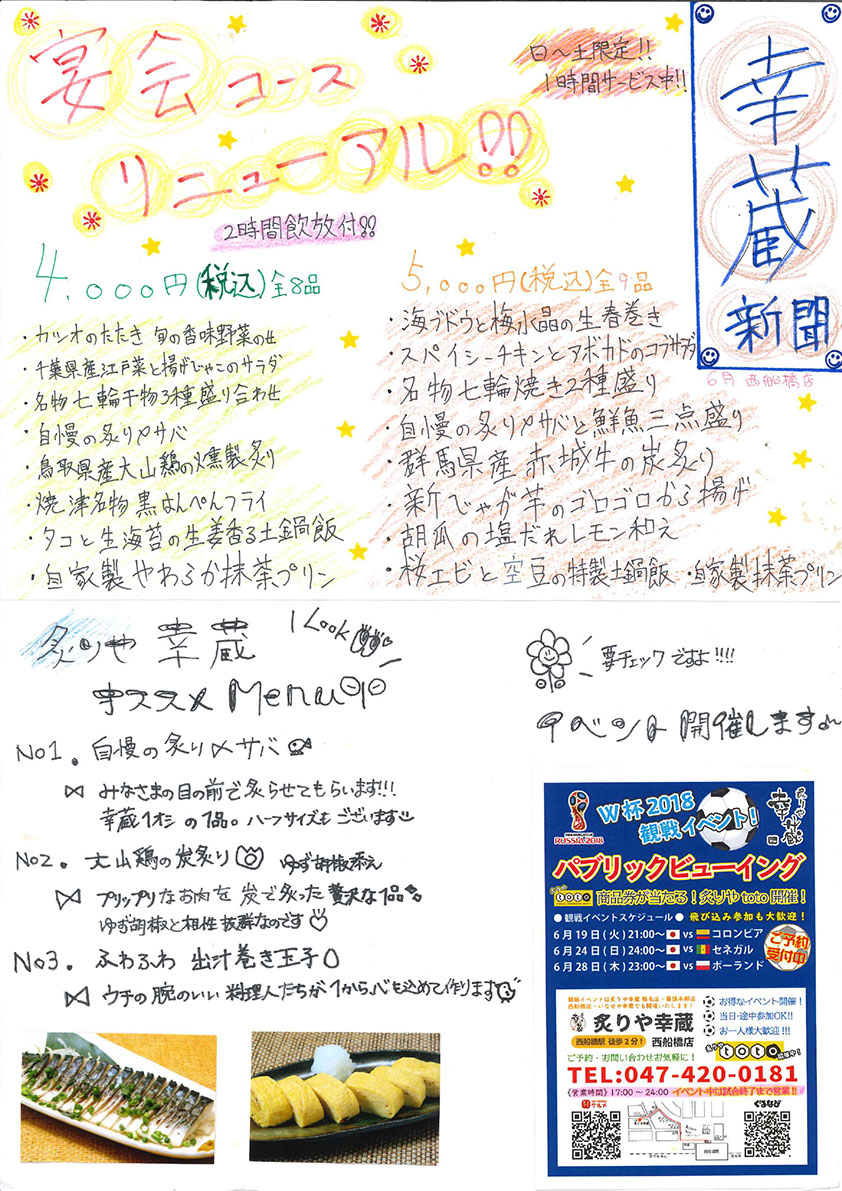 宴会コース
リニューアル!!
日〜土限定!!
1時間サービス中!!
幸蔵
新聞
6月 西船橋店
2時間飲放付!!
4,000円(税込)全8品
・カツオのたたき 旬の香味野菜のせ
・千葉県産江戸菜と揚げじゃこのサラダ
・名物七輪干物3種盛り合わせ
・自慢の炙り〆サバ
・鳥取県産大山鶏の燻製炙り
・焼津名物 黒はんぺんフライ
・タコと生海苔の生姜香る土鍋飯
・自家製やわらか抹茶プリン
5,000円(税込)全9品
・海ブドウと梅水晶の生春巻き
・スパイシーチキンとアボカドのコブサラダ
・名物七輪焼き2種盛り
・自慢の炙り〆サバと鮮魚三点盛り
・群馬県産 赤城牛の炭炙り
・新じゃが芋のゴロゴロから揚げ
・胡瓜の塩だれレモン和え
・桜エビと空豆の特製土鍋飯 ・自家製抹茶プリン
炙りや 幸蔵
Look
オススメ Menu
No1. 自慢の炙り〆サバ
みなさまの目の前で炙らせてもらいます!!!
幸蔵1オシの1品。ハーフサイズもございます
No2. 大山鶏の炭炙り ゆず胡椒添え
プリップリなお肉を炭で炙った贅沢な1品
ゆず胡椒と相性抜群なのです
No3. ふわふわ 出汁巻き玉子
ウチの腕のいい料理人たちが1から心を込めて作ります
要チェックですよ!!!!
イベント開催します
RUSSIA 2018
W杯2018
観戦イベント!
炙りや幸蔵
パブリックビューイング
toto 商品券が当たる!炙りやtoto開催!
●観戦イベントスケジュール● 飛び込み参加も大歓迎!
6月19日(火)21:00〜 vs コロンビア
6月24日(日)24:00〜 vs セネガル
6月28日(木)23:00〜 vs ポーランド
ご予約
受付中
観戦イベントは炙りや幸蔵 稲毛店・幕張本郷店
西船橋店・いなせや幸蔵でも開催いたします!
炙りや幸蔵
西船橋駅 徒歩2分! 西船橋店
お得なイベント開催!
当日・途中参加OK!!
お一人様大歓迎!!!
toto
ご予約・お問い合わせお気軽に!
TEL:047-420-0181
《営業時間》17:00〜24:00 イベント中は試合終了まで営業!!
ぐるなび